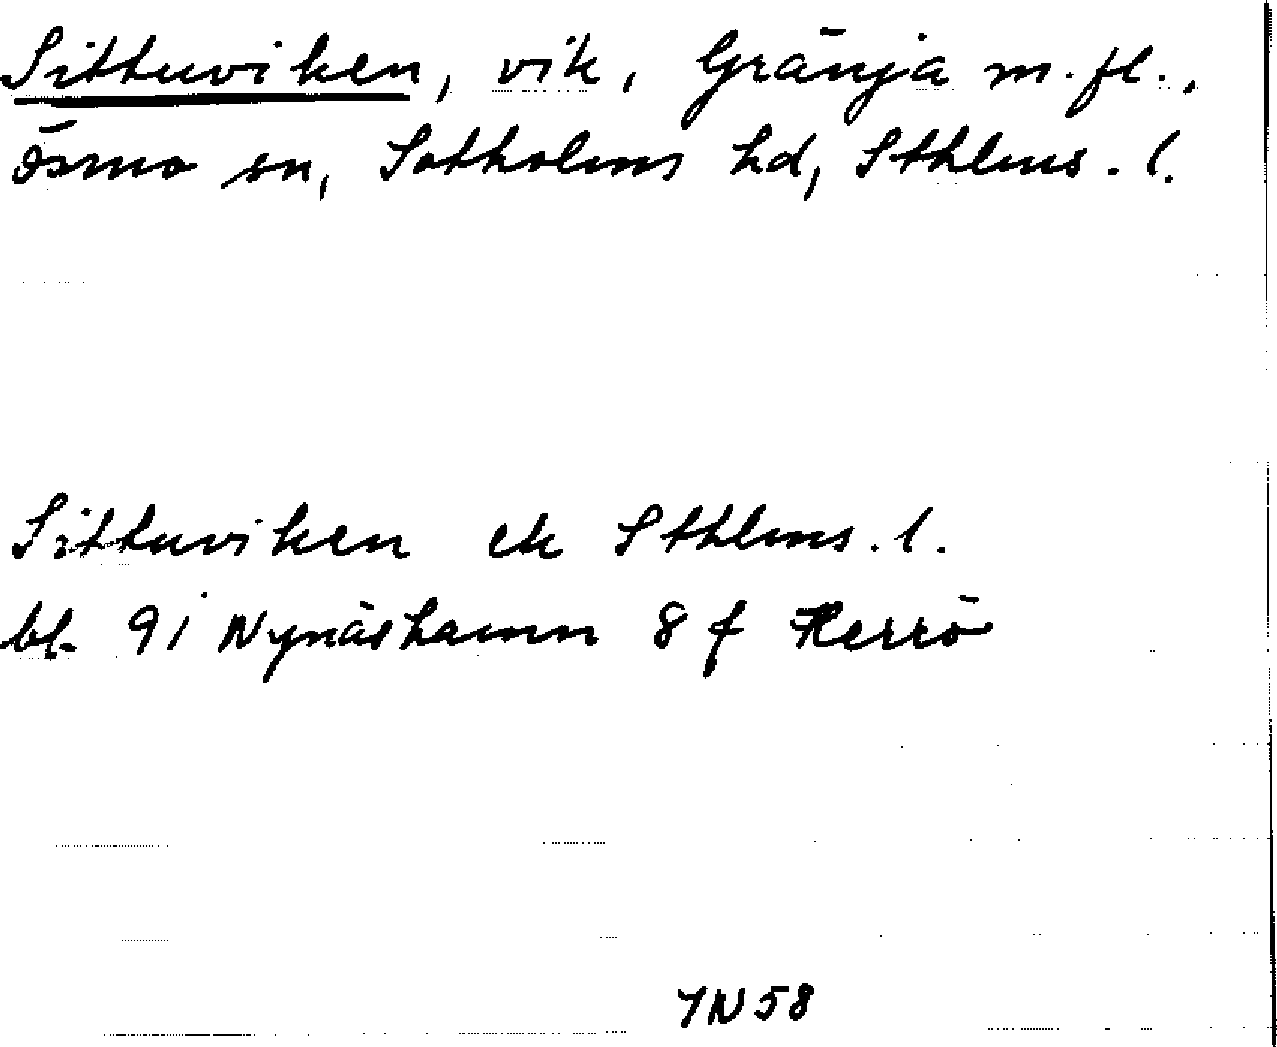 Sittuviken, vik, Gränja m.fl.,
Ösmo sn, Sotholms hd, Sthlms. l.
Sittuviken ek Sthlms. l.
bl. 9i Nynäshamn 8 f Herrö
YN58